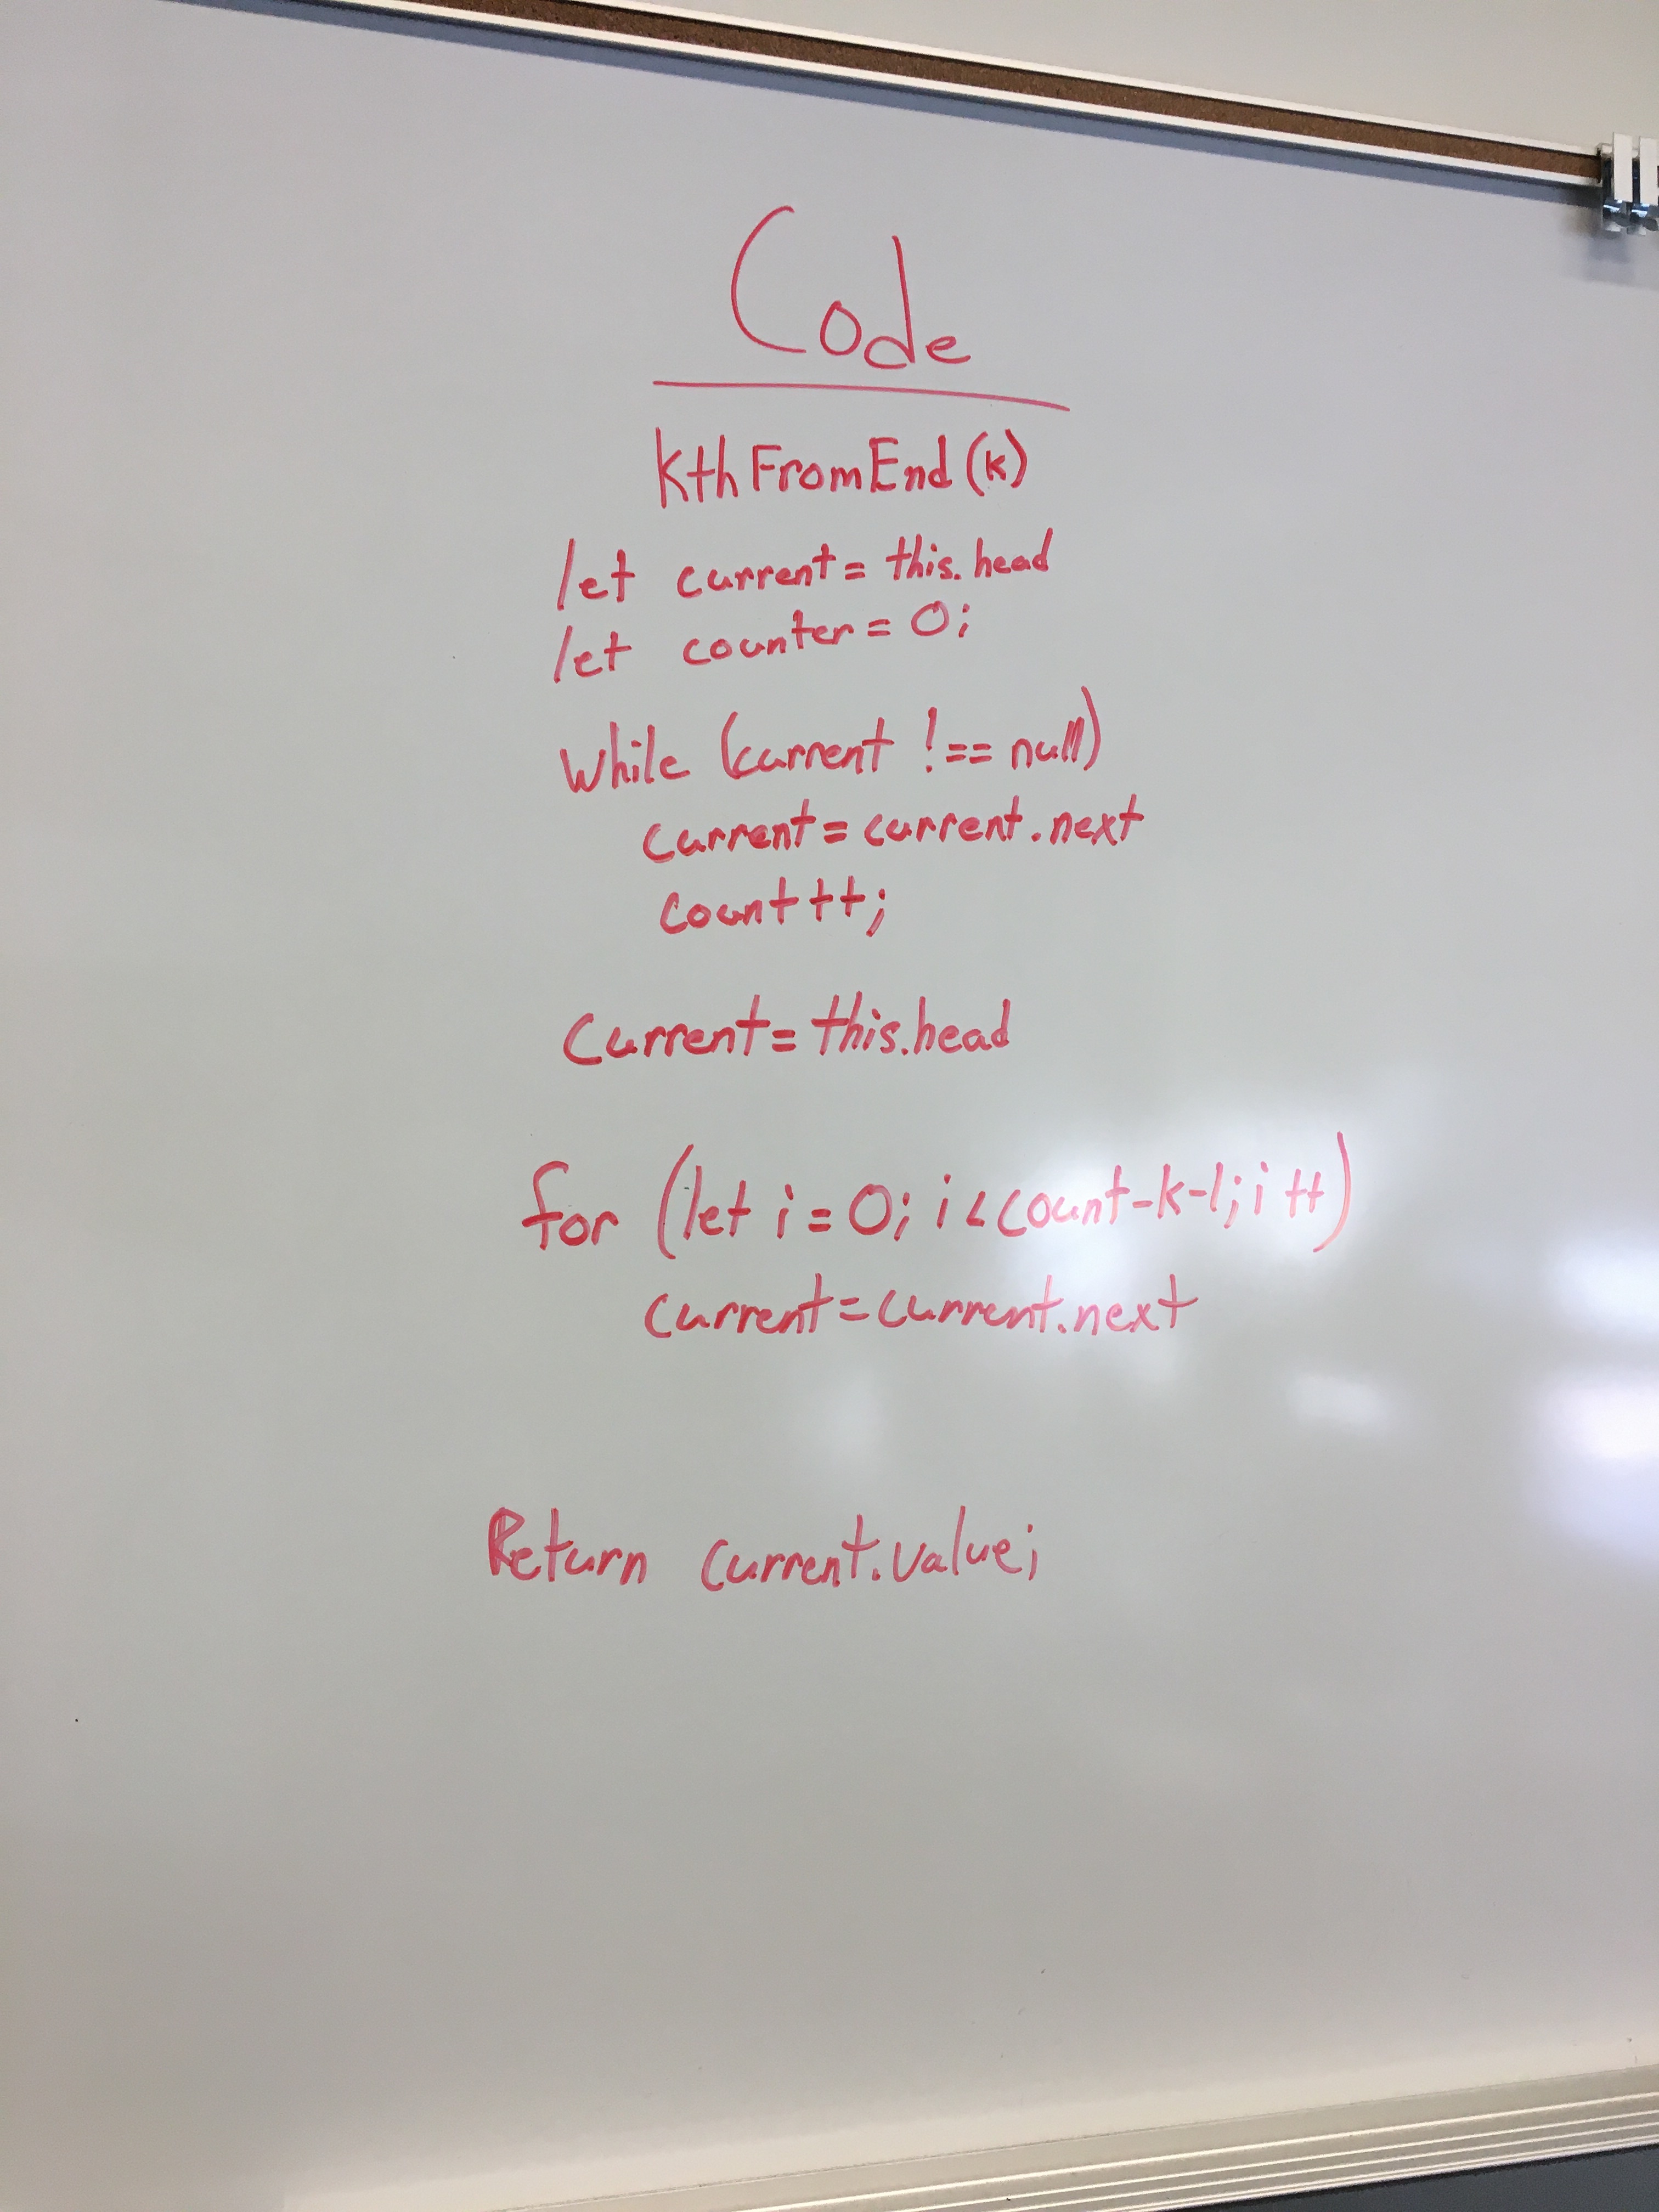 Code
KthFromEnd(k)
let current = this.head
let counter = 0;
while (current !== null)
current = current.next
count++;
Current = this.head
for (let i = 0; i < count-k-1; i++)
current = current.next
Return current.value;